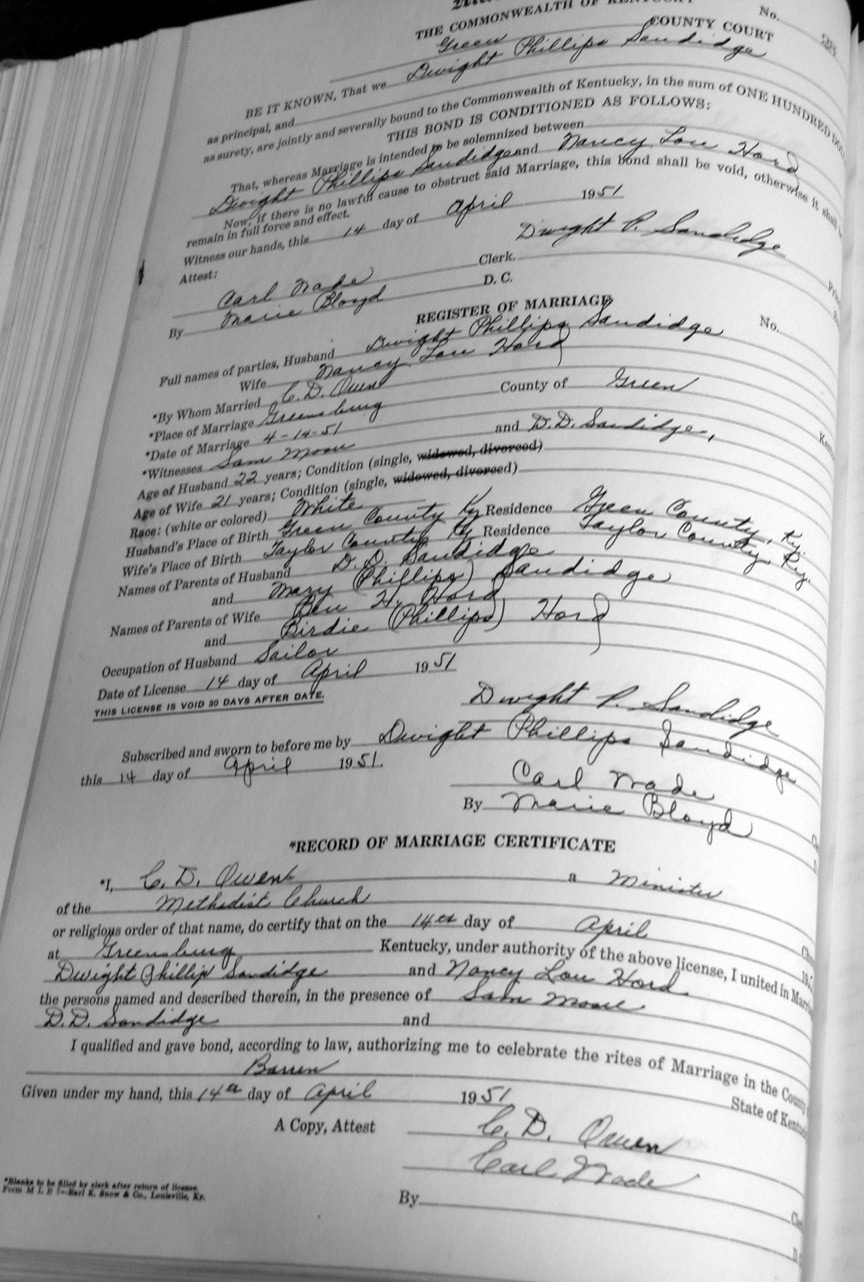 THE COMMONWEALTH OF KENTUCKY No.
Green COUNTY COURT
BE IT KNOWN, That we Dwight Phillips Sandidge
as principal, and
as surety, are jointly and severally bound to the Commonwealth of Kentucky, in the sum of ONE HUNDRED
THIS BOND IS CONDITIONED AS FOLLOWS:
That, whereas Marriage is intended to be solemnized between
Dwight Phillips Sandidge and Nancy Lou Hord
Now, if there is no lawful cause to obstruct said Marriage, this bond shall be void, otherwise it
remain in full force and effect.
Witness our hands, this 14 day of April 1951
Attest: Dwight P. Sandidge
Carl Wade Clerk.
By Marie Bloyd D. C.
REGISTER OF MARRIAGE No.
Full names of parties, Husband Dwight Phillips Sandidge
Wife Nancy Lou Hord
*By Whom Married C. D. Owen
*Place of Marriage Greensburg County of Green
*Date of Marriage 4-14-51
*Witnesses Sam Moore and D.D. Sandidge,
Age of Husband 22 years; Condition (single, widowed, divorced)
Age of Wife 21 years; Condition (single, widowed, divorced)
Race: (white or colored) White
Husband's Place of Birth Green County Ky Residence Green County, Ky.
Wife's Place of Birth Taylor County Ky Residence Taylor County, Ky.
Names of Parents of Husband D. D. Sandidge
and Mary (Phillips) Sandidge
Names of Parents of Wife Ben H. Hord
and Birdie (Phillips) Hord
Occupation of Husband Sailor
Date of License 14 day of April 1951
THIS LICENSE IS VOID 30 DAYS AFTER DATE.
Dwight P. Sandidge
Subscribed and sworn to before me by Dwight Phillips Sandidge
this 14 day of April 1951.
Carl Wade
By Marie Bloyd
*RECORD OF MARRIAGE CERTIFICATE
*I, C. D. Owen a Minister
of the Methodist Church
or religious order of that name, do certify that on the 14th day of April
at Greensburg Kentucky, under authority of the above license, I united in
Dwight Phillip Sandidge and Nancy Lou Hord
the persons named and described therein, in the presence of Sam Moore
D.D. Sandidge and
I qualified and gave bond, according to law, authorizing me to celebrate the rites of Marriage in the County
Barren State of
Given under my hand, this 14th day of April 1951
A Copy, Attest C. D. Owen
Carl Wade
By
*Blanks to be filled by clerk after return of license.
Form M L B 7—Earl K. Snow & Co., Louisville, Ky.